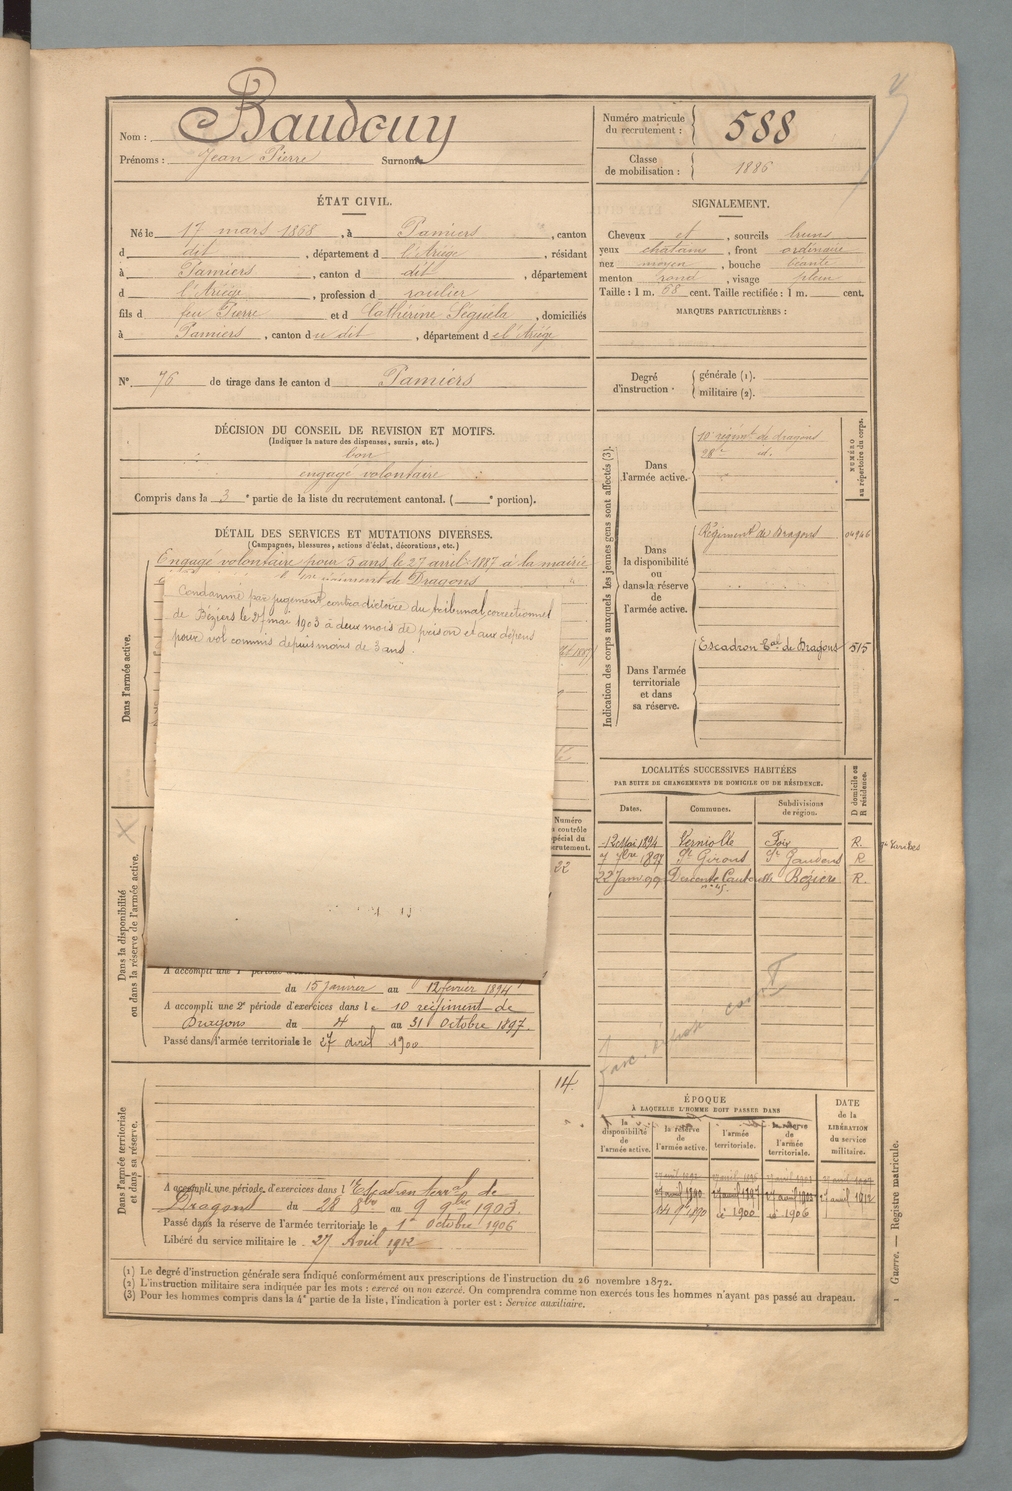 Nom : Baudouy
Prénoms : Jean Pierre Surnoms
Numéro matricule du recrutement : 588
Classe de mobilisation : 1886
ÉTAT CIVIL.
Né le 17 mars 1868, à Pamiers, canton
d dit, département d l'Ariège, résidant
à Pamiers, canton d dit, département
d l'Ariège, profession d roulier
fils d feu Pierre et d Catherine Séguéla, domiciliés
à Pamiers, canton du dit, département d el Ariège
SIGNALEMENT.
Cheveux et, sourcils bruns
yeux chatains, front ordinaire
nez moyen, bouche
menton rond, visage plein
Taille : 1 m. 68 cent. Taille rectifiée : 1 m. cent.
MARQUES PARTICULIÈRES :
N° 76 de tirage dans le canton d Pamiers
Degré d'instruction. générale (1).
militaire (2).
DÉCISION DU CONSEIL DE REVISION ET MOTIFS.
(Indiquer la nature des dispenses, sursis, etc.)
bon
engagé volontaire
Compris dans la 3e partie de la liste du recrutement cantonal. ( e portion).
DÉTAIL DES SERVICES ET MUTATIONS DIVERSES.
(Campagnes, blessures, actions d'éclat, décorations, etc.)
Dans l'armée active.
Engagé volontaire pour 5 ans le 27 avril 1887 à la mairie
de Dragons
Condamné par jugement contradictoire du tribunal correctionnel
de Béziers le 27 mai 1903 à deux mois de prison et aux dépens
pour vol commis depuis moins de 3 ans.
Indication des corps auxquels les jeunes gens sont affectés (3).
NUMÉRO au répertoire du corps.
Dans l'armée active.
10 régimt de dragons
28e id.
Dans la disponibilité ou dans la réserve de l'armée active.
Régiment de Dragons 04946
Dans l'armée territoriale et dans sa réserve.
Escadron Cal de Dragons 515
LOCALITÉS SUCCESSIVES HABITÉES
PAR SUITE DE CHANGEMENTS DE DOMICILE OU DE RÉSIDENCE.
Dates. Communes. Subdivisions de région. D domicile ou R résidence.
12 Mai 1894 Verniolle Foix R.
7 7bre 1897 St Girons St Gaudens R
22 Janv 99 Béziers R.
Numéro
contrôle
spécial du
recrutement.
22
Dans la disponibilité ou dans la réserve de l'armée active.
A accompli une 1e période
du 15 Janvier au 12 février 1894
A accompli une 2e période d'exercices dans le 10 régiment de
Dragons du 4 au 31 Octobre 1897.
Passé dans l'armée territoriale le 27 avril 1900
14.
Dans l'armée territoriale et dans sa réserve.
A accompli une période d'exercices dans l'Escadron terral de
Dragons du 28 8bre au 9 9bre 1903.
Passé dans la réserve de l'armée territoriale le 1er Octobre 1906
Libéré du service militaire le 27 Avril 1912
ÉPOQUE
À LAQUELLE L'HOMME DOIT PASSER DANS
la disponibilité de l'armée active.
la réserve de l'armée active.
l'armée territoriale.
la réserve de l'armée territoriale.
DATE de la LIBÉRATION du service militaire.
27 avril 1890 27 avril 1897 27 avril 1903 27 avril 1912
1900 1906
(1) Le degré d'instruction générale sera indiqué conformément aux prescriptions de l'instruction du 26 novembre 1872.
(2) L'instruction militaire sera indiquée par les mots : exercé ou non exercé. On comprendra comme non exercés tous les hommes n'ayant pas passé au drapeau.
(3) Pour les hommes compris dans la 4e partie de la liste, l'indication à porter est : Service auxiliaire.
1 Guerre. — Registre matricule.